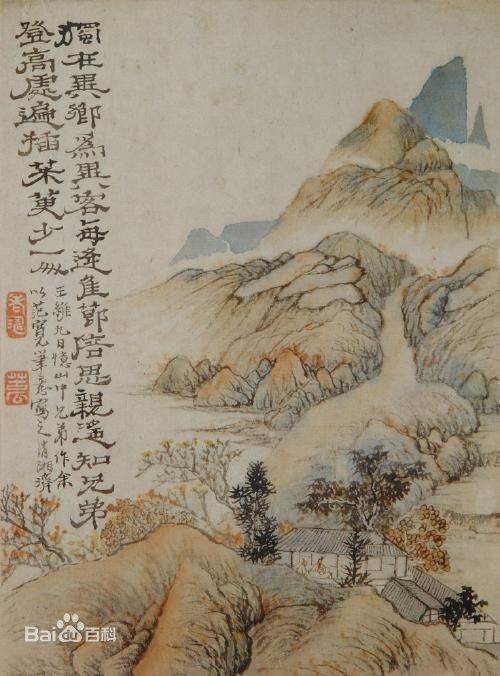 獨在異鄉爲異客每逢佳節倍思親遥知兄弟
登高處遍插茱萸少一人
王維九日憶山中兄弟作余
以范寬筆意寫之清湘濟
Bai百科